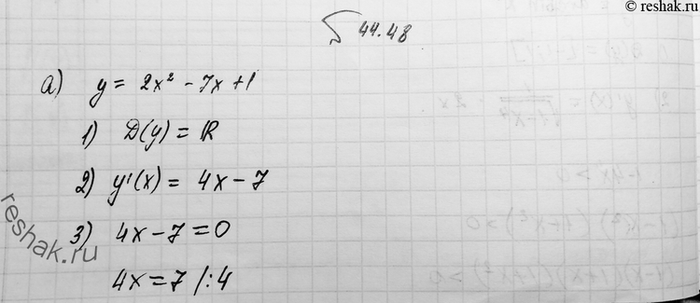 © reshak.ru
44.48
а) y = 2x² - 7x + 1
1) D(y) = ℝ
2) y'(x) = 4x - 7
3) 4x - 7 = 0
4x = 7 /:4
reshak.ru